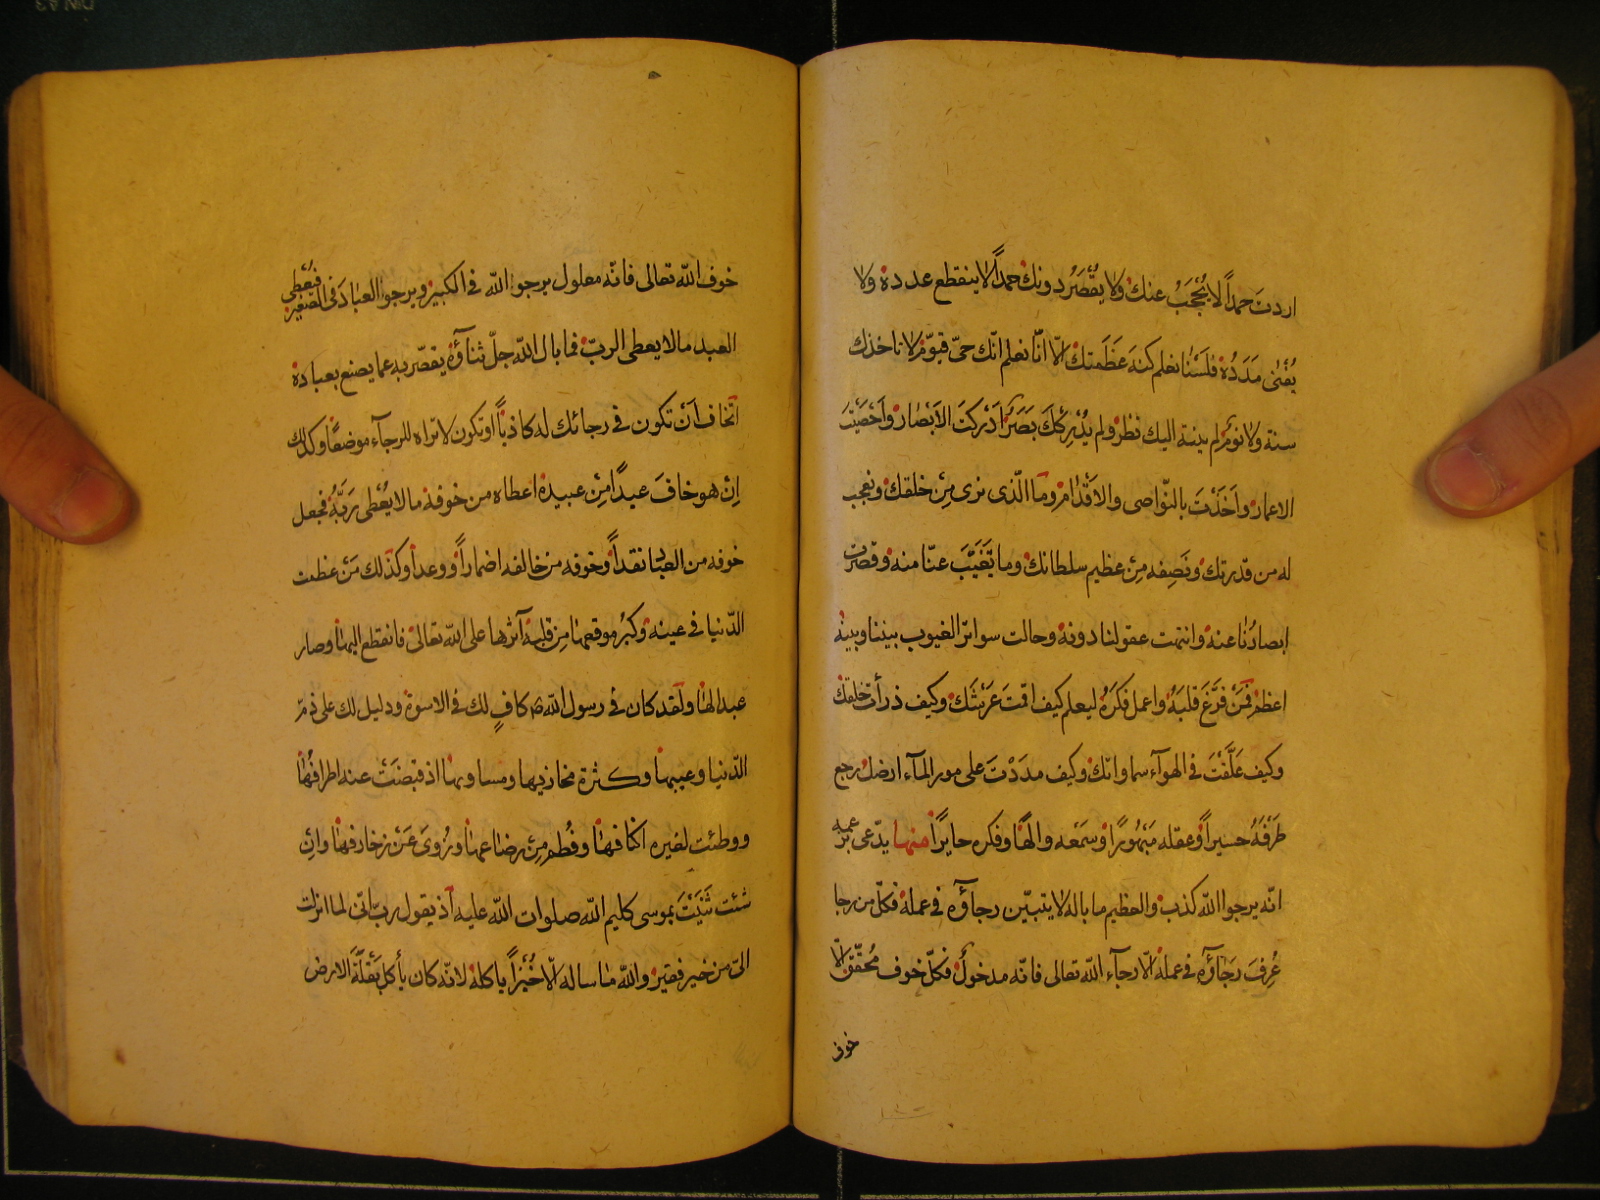 اردت حمداً لا يُحْجَبُ عنك ولا يُقْصَرُ دونك حمداً لا ينقطع عدده ولا
يَفْنى مَدَدُهُ فَلَسْنا نعلم كنهَ عَظَمتك الّا انّا نعلم انّك حىّ قيّوم لا تاخذك
سنة ولا نوم لم ينته اليك نظر ولم يُدْرِكْكَ بَصَرٌ اَدْركتَ الاَبْصار واَحْصَيْتَ
الاعمار واَخَذْتَ بالنّواصى والاقدام وما الّذى نرى مِنْ خلقك ونعجب
له من قدرتك ونَصِفه مِنْ عظيم سلطانك وما تَغَيَّبَ عنّا منه وقصرت
ابصارُنا عنه وانتهت عقولنا دونه وحالت سواتر الغيوب بيننا وبينه
اعظم فَمَنْ فَرَّغَ قلبَهُ واعمل فكرَهُ ليعلم كيف اقمتَ عَرْشَكَ وكيف ذرأتَ خلقك
وكيف عَلَّقْتَ فى الهوآء سماواتك وكيف مدَدْتَ على مور المآء ارضك رجع
طَرْفُهُ حسيراً وعقله مَبْهُوراً وسَمْعه والهاً وفكره حايراً منها يدّعى بزعمه
انّه يرجوا الله كذب والعظيم ما باله لا يتبيّن رجاؤه فى عمله فكلّ من رجا
عُرِفَ رَجَاؤُه فى عمله الّا رجآء الله تعالى فانّه مدخولٌ وكلّ خوف مُحقّقٌ الّا
خوف
خوف الله تعالى فانّه معلول يرجوا الله فى الكبير ويرجوا العبادَ فى الصّغير فيُعْطى
العبد ما لا يعطى الربّ فما بال الله جلّ ثناؤه يقصّر به عما يصنع بعباده
اتخاف اَنْ تكون فى رجائك له كاذباً او تكون لا تراه للرجآء موضعاً وكذلك
اِنْ هو خافَ عبداً مِنْ عبيده اعطاه من خوفه ما لا يُعْطى رَبَّهُ فجعل
خوفه من العباد نقداً وخوفه من خالقه ضماراً ووعداً وكذلك مَنْ عظمت
الدّنيا فى عينه وكبُر موقعها مِنْ قلبه آثرها على الله تعالى فانقطع اليها وصار
عبدا لها ولقد كان فى رسول الله ص كافٍ لك فى الاسوة ودليل لك على ذمّ
الدّنيا وعيبها وكثرة مخازيها ومساويها اذ قبضَتْ عنه اطرافُها
ووطئت لغيره اكنافها وفُطم مِنْ رضاعها وزُوِىَ عَنْ زخارفها وانْ
شئت ثَنَّيْتَ بموسى كليم الله صلوات الله عليه اذ يقول ربّ انّى لما انزلت
الىّ من خير فقير والله ما ساله الّا خُبْزاً ياكله لانّه كان يأكل بَقْلَةَ الارض